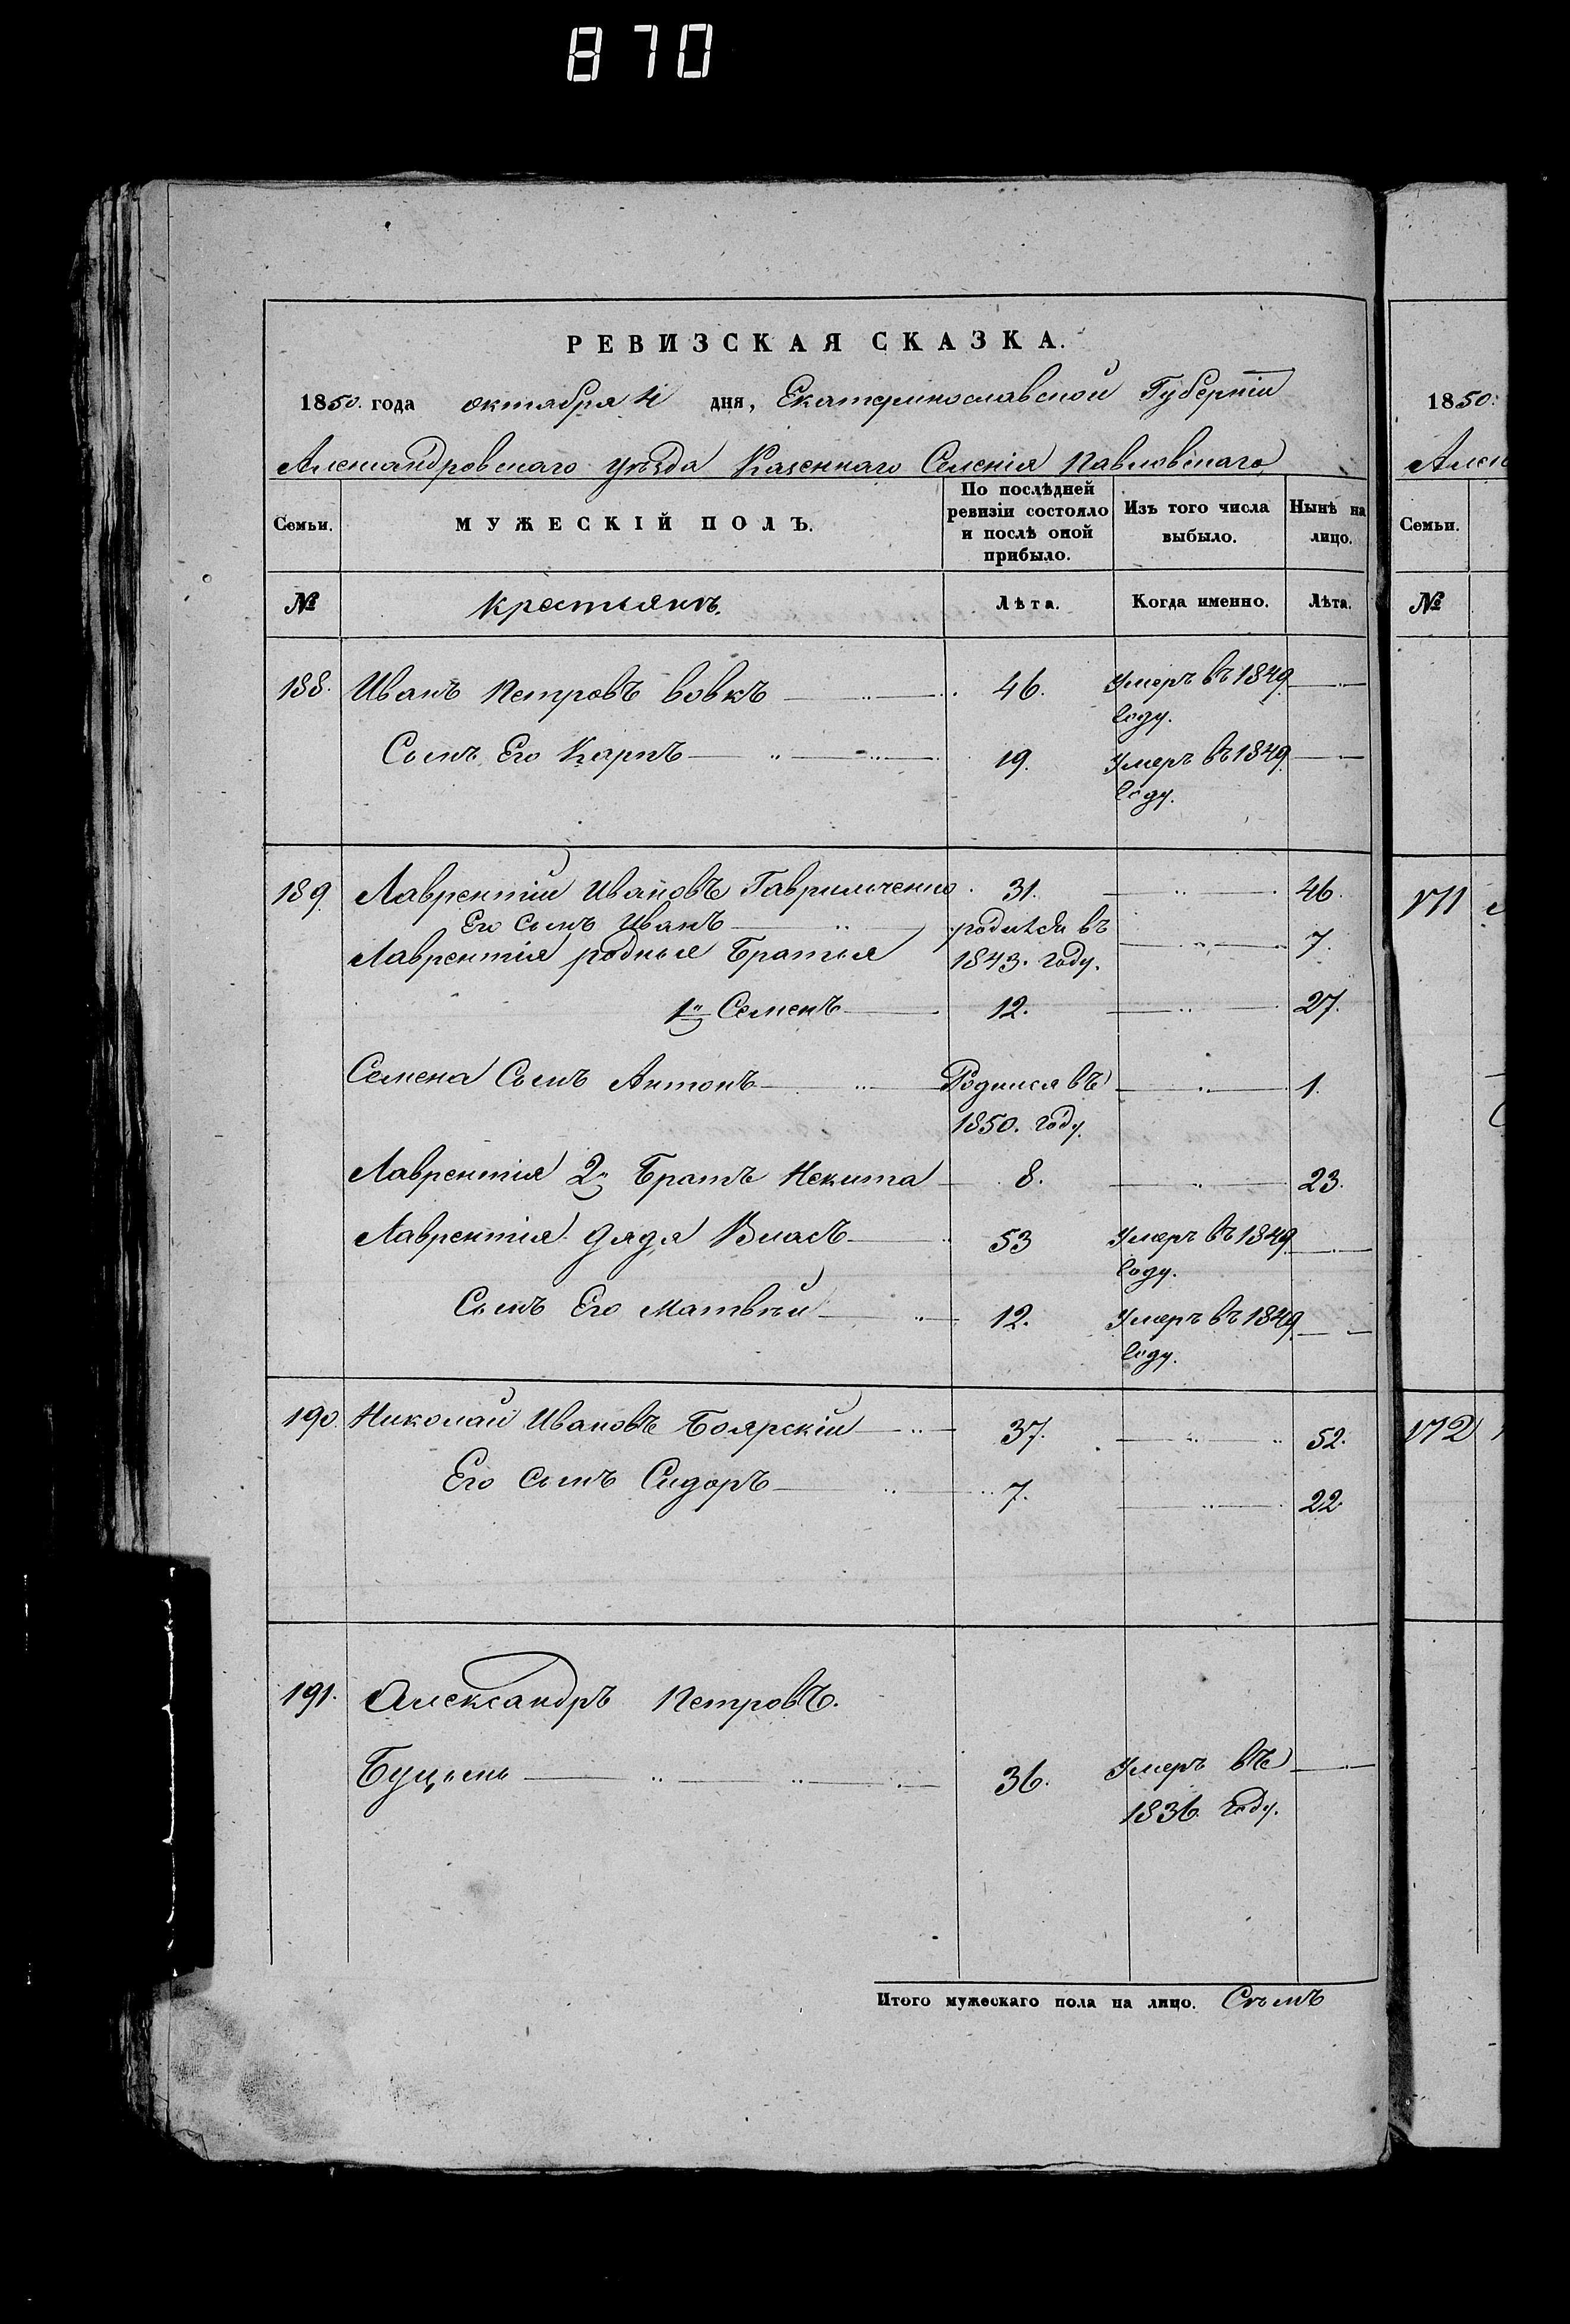 870
РЕВИЗСКАЯ СКАЗКА.
1850. года октября 4 дня, Екатеринославской Губерніи
Александровскаго уѣзда Казеннаго Селенія Павловскаго
Семьи. МУЖЕСКІЙ ПОЛЪ. По послѣдней ревизіи состояло и послѣ оной прибыло. Изъ того числа выбыло. Нынѣ на лицо.
№ крестьянъ. Лѣта. Когда именно. Лѣта.
188. Иванъ Петровъ Вовкъ 46. Умеръ въ 1849
году.
Сынъ Его Карпъ 19. Умеръ въ 1849
году.
189 Лаврентій Ивановъ Гаврильченко 31. 46.
Его сынъ Иванъ родился въ
Лаврентія родные Братья 1843. году. 7.
1й Семенъ 12. 27.
Семена Сынъ Антонъ Родился въ 1.
1850. году.
Лаврентія 2й Братъ Некита 8. 23.
Лаврентія дядя Власъ 53 Умеръ въ 1849
году.
Сынъ Его Матвѣй 12. Умеръ въ 1849
году.
190. Николай Ивановъ Боярскій 37. 52.
Его сынъ Сидоръ 7. 22
191. Александръ Петровъ.
36. Умеръ въ
1836. году.
Итого мужескаго пола на лицо. Семь
1850.
Семьи.
№
171
172